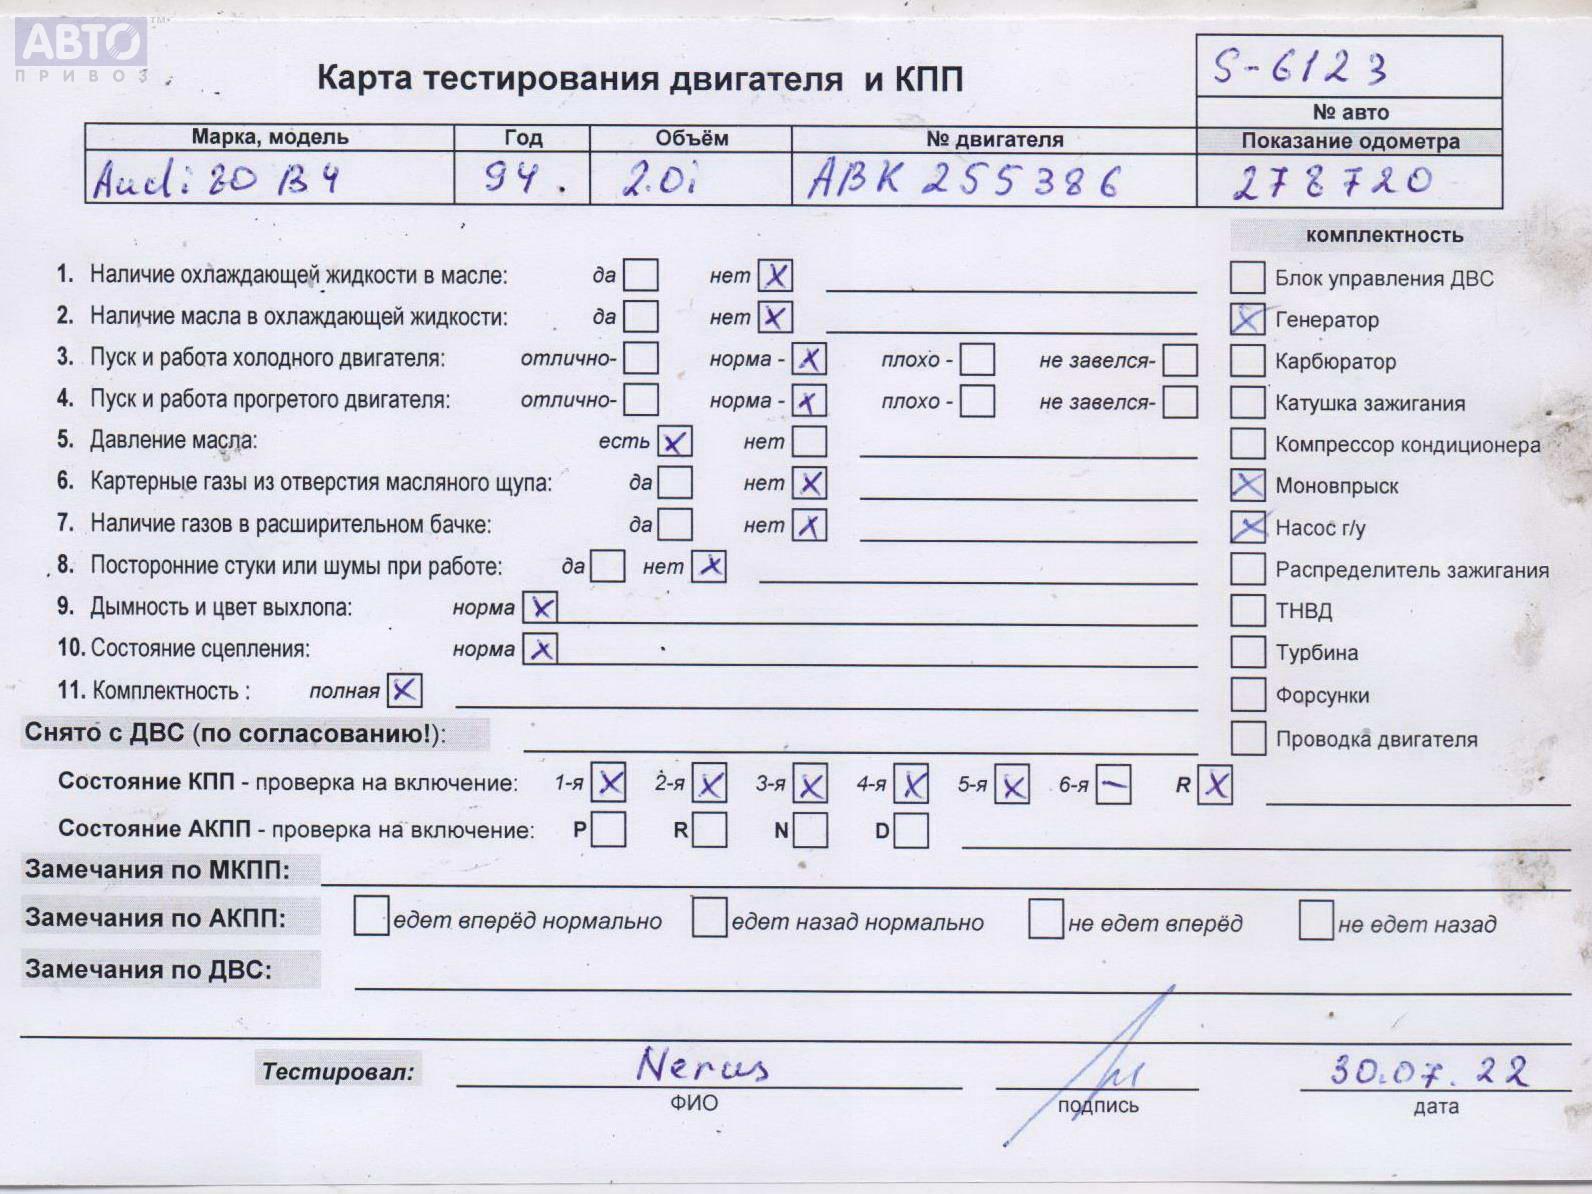 АВТО™
ПРИВОЗ
Карта тестирования двигателя и КПП
S-6123
№ авто
Марка, модель Год Объём № двигателя Показание одометра
Audi 80 B4 94. 2.0i ABK 255386 278720
комплектность
1. Наличие охлаждающей жидкости в масле: да нет X
Блок управления ДВС
2. Наличие масла в охлаждающей жидкости: да нет X
X Генератор
3. Пуск и работа холодного двигателя: отлично- норма - X плохо - не завелся-
Карбюратор
4. Пуск и работа прогретого двигателя: отлично- норма - X плохо - не завелся-
Катушка зажигания
5. Давление масла: есть X нет
Компрессор кондиционера
6. Картерные газы из отверстия масляного щупа: да нет X
X Моновпрыск
7. Наличие газов в расширительном бачке: да нет X
X Насос г/у
8. Посторонние стуки или шумы при работе: да нет X
Распределитель зажигания
9. Дымность и цвет выхлопа: норма X
ТНВД
10. Состояние сцепления: норма X
Турбина
11. Комплектность : полная X
Форсунки
Снято с ДВС (по согласованию!):
Проводка двигателя
Состояние КПП - проверка на включение: 1-я X 2-я X 3-я X 4-я X 5-я X 6-я — R X
Состояние АКПП - проверка на включение: P R N D
Замечания по МКПП:
Замечания по АКПП: едет вперёд нормально едет назад нормально не едет вперёд не едет назад
Замечания по ДВС:
Тестировал: Nerus 30.07.22
ФИО подпись дата